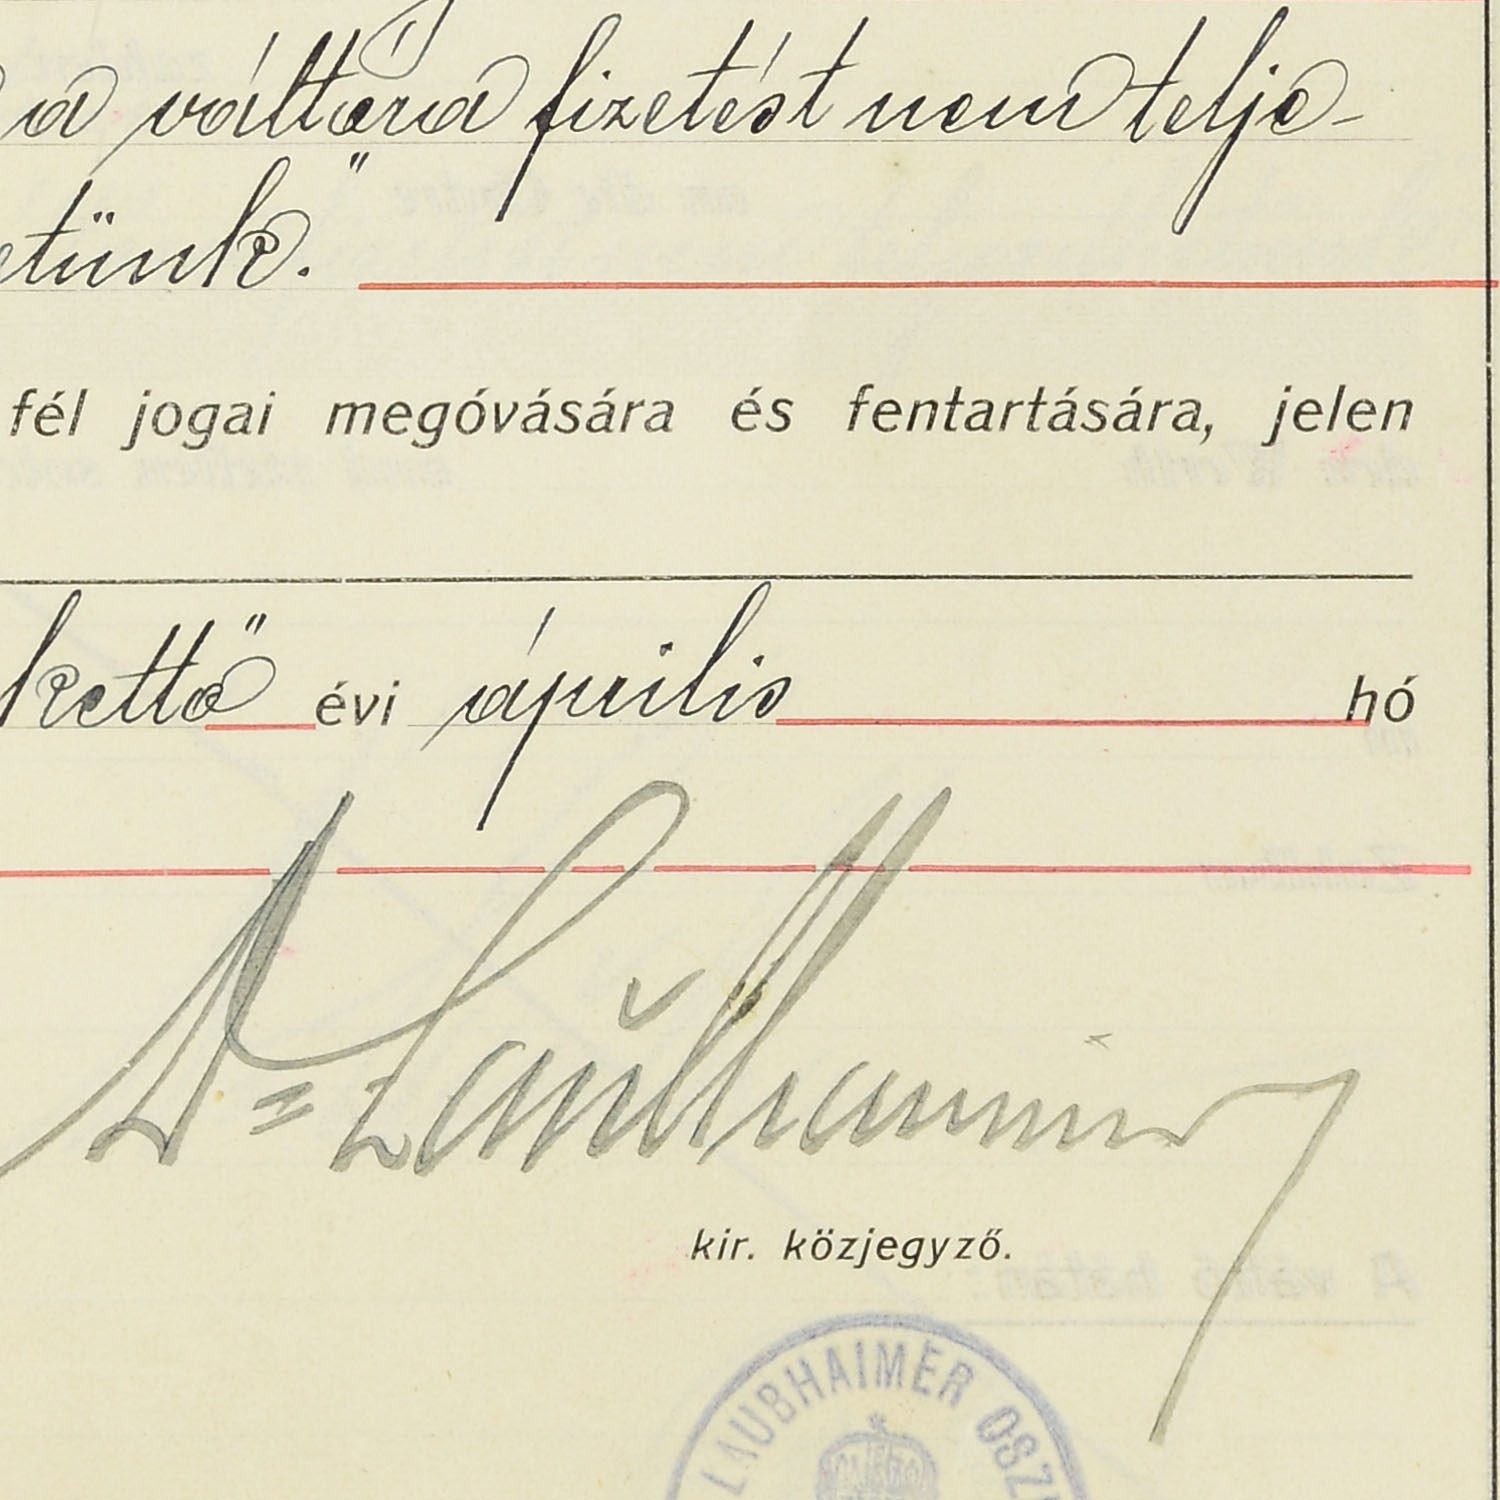 a váltóra fizetést nem telje-
etünk."
fél jogai megóvására és fentartására, jelen
kettő évi április hó
Dr Laubhaimer
kir. közjegyző.
LAUBHAIMER OSZ